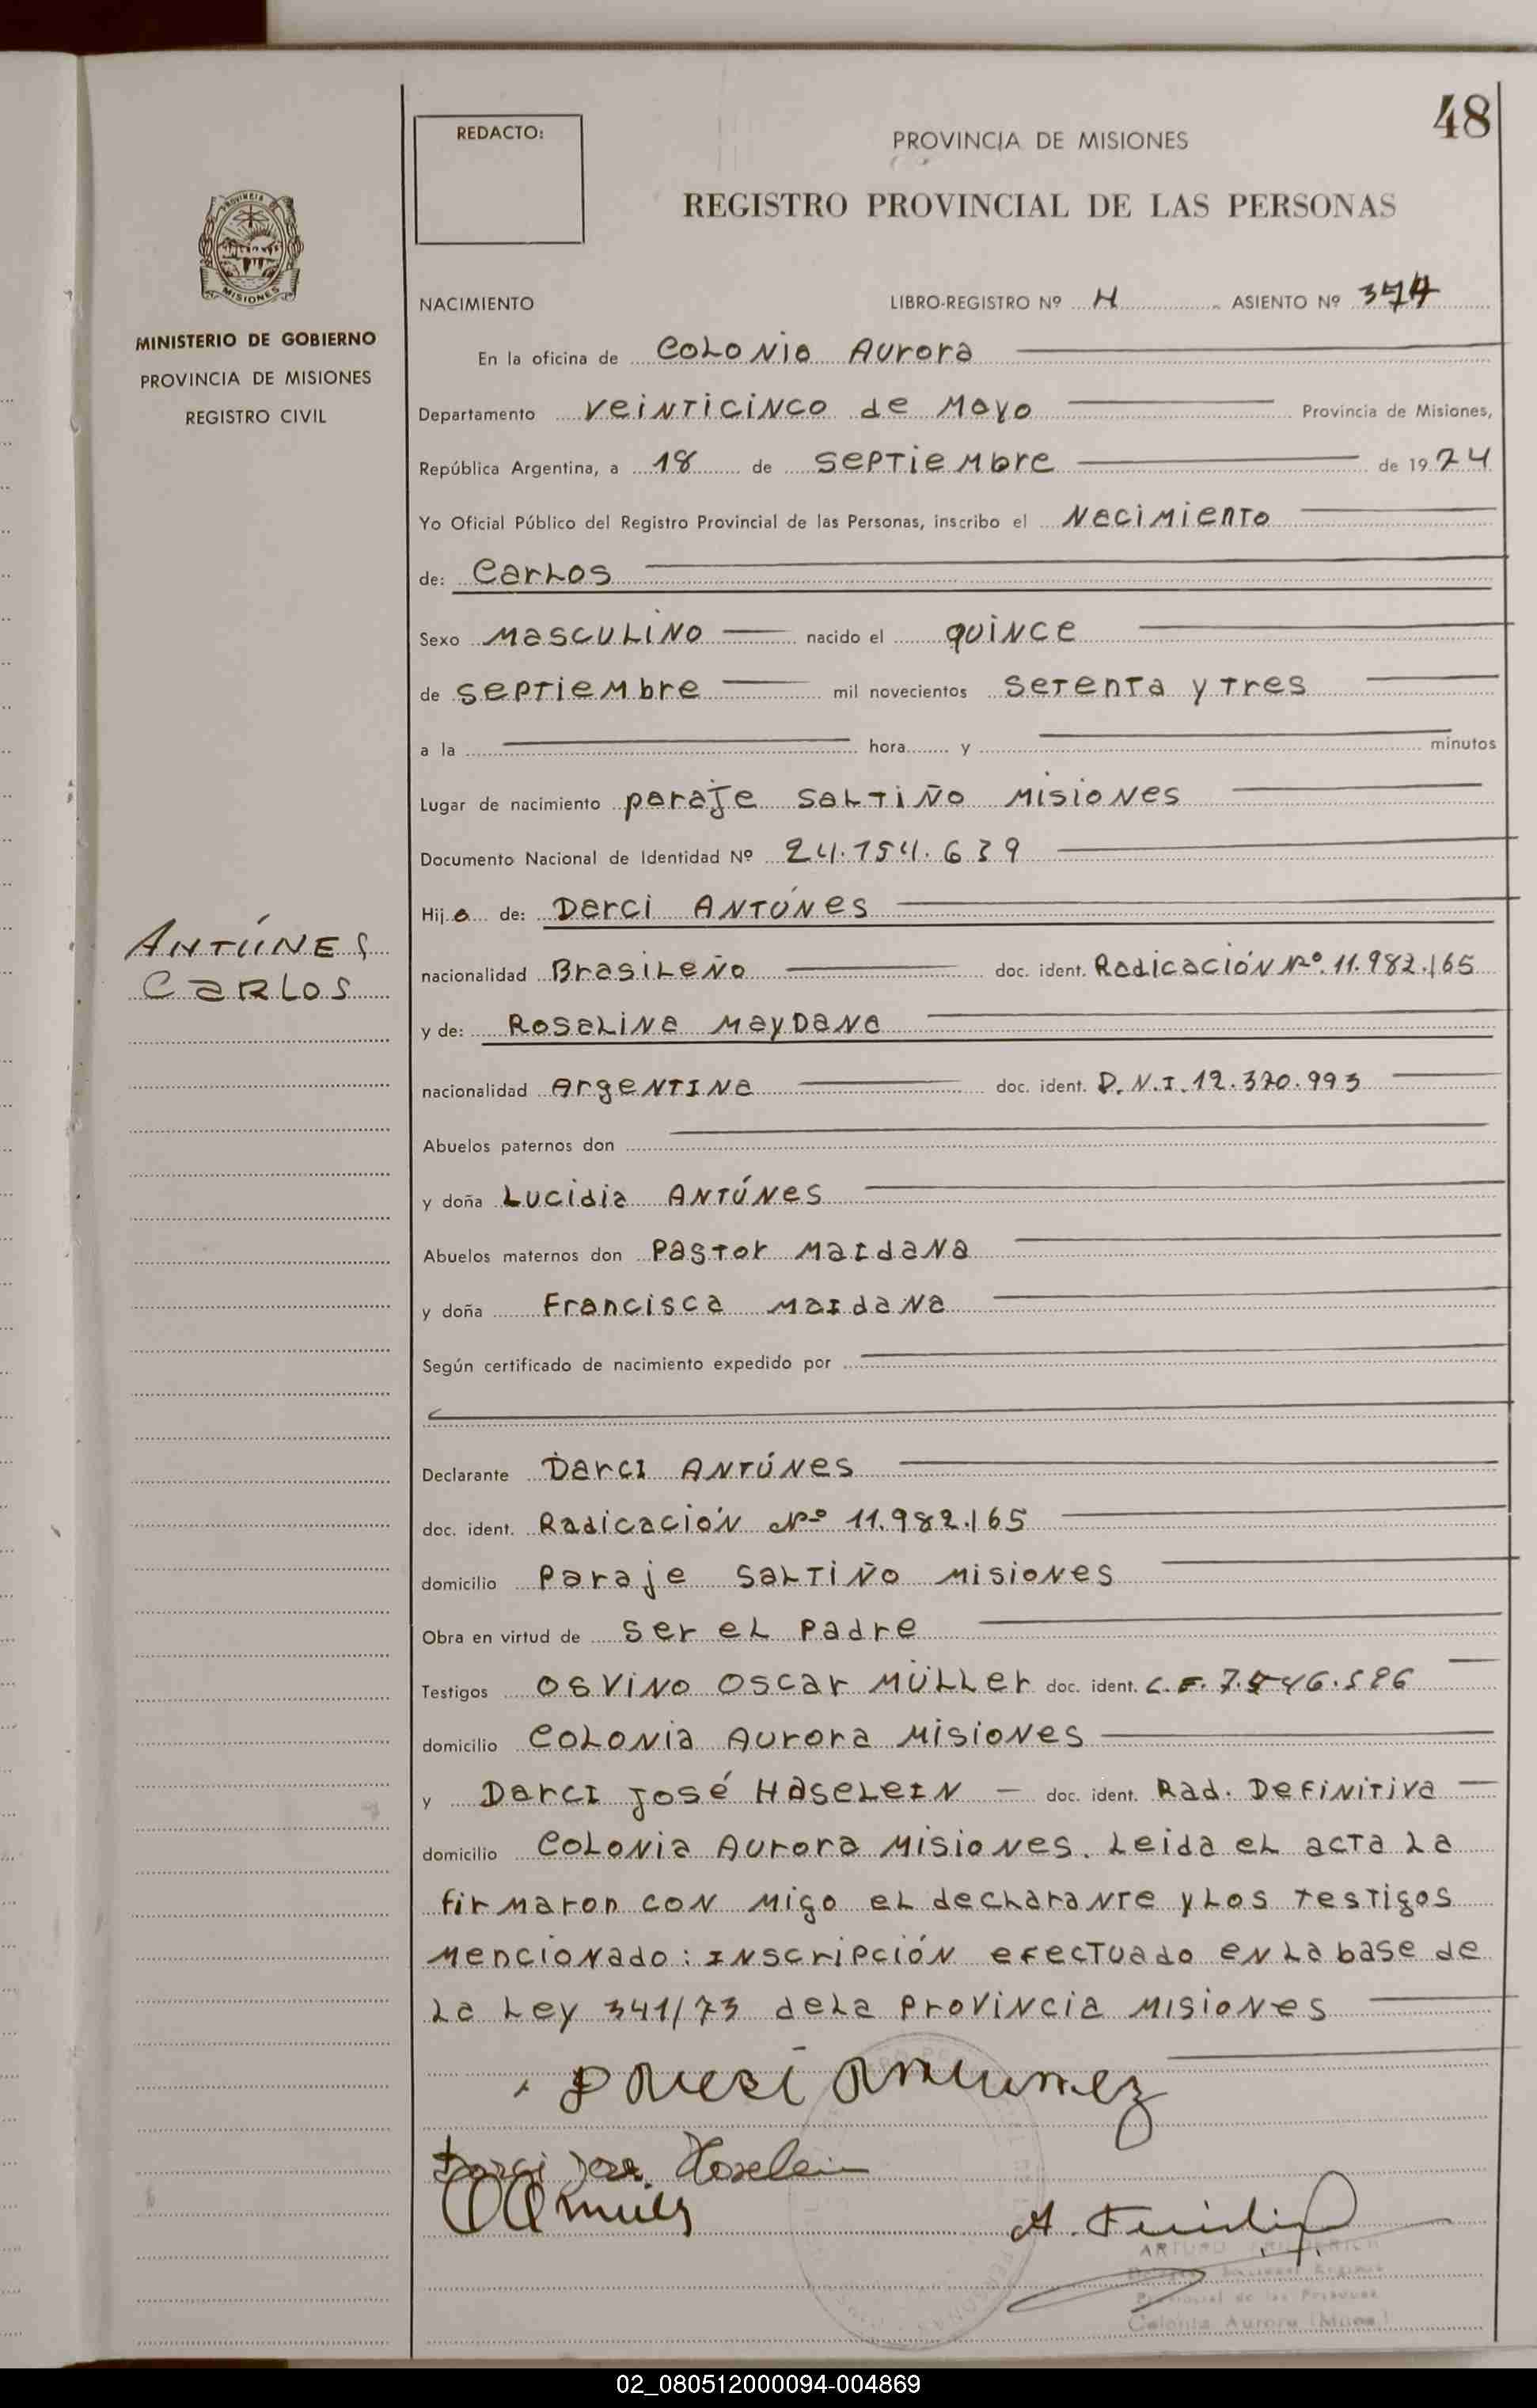 48
REDACTO:
PROVINCIA DE MISIONES
REGISTRO PROVINCIAL DE LAS PERSONAS
PROVINCIA DE
MISIONES
MINISTERIO DE GOBIERNO
PROVINCIA DE MISIONES
REGISTRO CIVIL
NACIMIENTO LIBRO-REGISTRO Nº H ASIENTO Nº 374
En la oficina de Colonia Aurora
Departamento Veinticinco de Mayo Provincia de Misiones,
República Argentina, a 18 de septiembre de 1974
Yo Oficial Público del Registro Provincial de las Personas, inscribo el Nacimiento
de: Carlos
Sexo Masculino nacido el quince
de septiembre mil novecientos setenta y tres
a la hora y minutos
Lugar de nacimiento paraje Saltiño Misiones
Documento Nacional de Identidad Nº 24.154.639
Hijo de: Darci Antúnes
ANTÚNES
CARLOS
nacionalidad Brasileño doc. ident. Radicación Nº 11.982.165
y de: Rosalina Maydana
nacionalidad Argentina doc. ident. D.N.I. 12.370.993
Abuelos paternos don
y doña Lucidia Antúnes
Abuelos maternos don Pastor Maidana
y doña Francisca Maidana
Según certificado de nacimiento expedido por
Declarante Darci Antúnes
doc. ident. Radicación Nº 11.982.165
domicilio Paraje Saltiño Misiones
Obra en virtud de ser el padre
Testigos Osvino Oscar Müller doc. ident.
domicilio Colonia Aurora Misiones
y Darci José Haselein doc. ident. Rad. Definitiva
domicilio Colonia Aurora Misiones. Leida el acta la
firmaron con migo el declarante y los testigos
mencionado: inscripción efectuado en la base de
la ley 341/73 dela provincia Misiones
Darci Jose Haselein
ARTURO
Colonia Aurora (Mnes.)
02_080512000094-004869